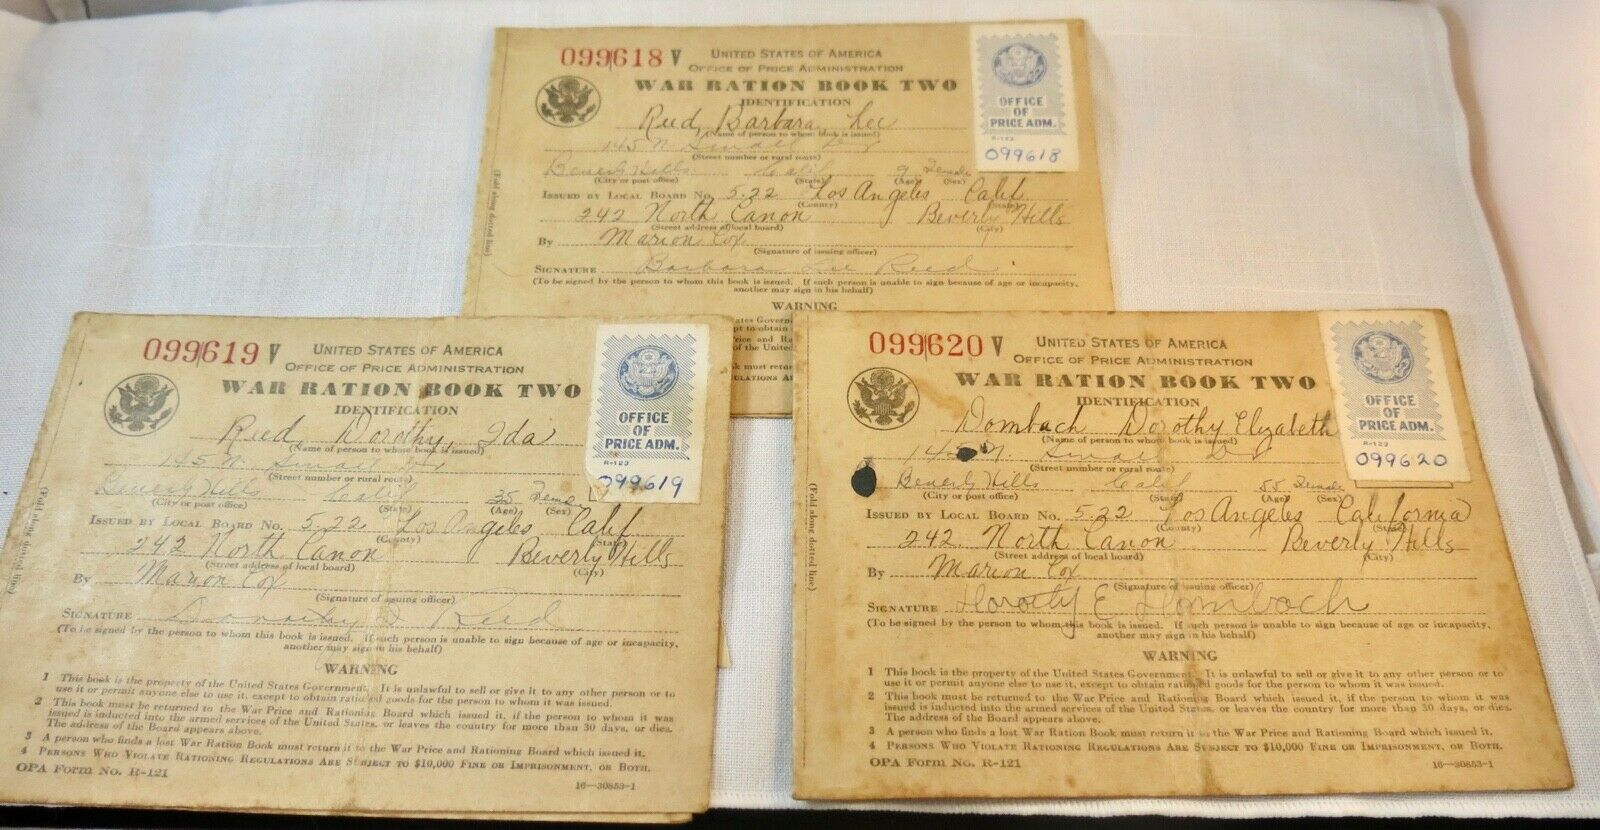 099618 V
UNITED STATES OF AMERICA
OFFICE OF PRICE ADMINISTRATION
WAR RATION BOOK TWO
IDENTIFICATION
OFFICE
OF
PRICE ADM.
R-123
099618
Reed, Barbara, Lee
(Name of person to whom book is issued)
145 N.
(Street number or rural route)
Beverly Hills Calif 9 Female
(City or post office) (State) (Age) (Sex)
ISSUED BY LOCAL BOARD NO. 5-22 Los Angeles Calif.
(County) (State)
242 North Canon Beverly Hills
(Street address of local board) (City)
By Marion Cox
(Signature of issuing officer)
SIGNATURE Barbara Lee Reed
(To be signed by the person to whom this book is issued. If such person is unable to sign because of age or incapacity,
another may sign in his behalf)
WARNING
099619 V
UNITED STATES OF AMERICA
OFFICE OF PRICE ADMINISTRATION
WAR RATION BOOK TWO
IDENTIFICATION
OFFICE
OF
PRICE ADM.
R-123
099619
Reed, Dorothy, Ida
(Name of person to whom book is issued)
145 N.
(Street number or rural route)
Beverly Hills Calif 35
(City or post office) (State) (Age) (Sex)
ISSUED BY LOCAL BOARD NO. 5-22 Los Angeles Calif.
(County) (State)
242 North Canon Beverly Hills
(Street address of local board) (City)
By Marion Cox
(Signature of issuing officer)
SIGNATURE Dorothy I Reed
(To be signed by the person to whom this book is issued. If such person is unable to sign because of age or incapacity,
another may sign in his behalf)
WARNING
1 This book is the property of the United States Government. It is unlawful to sell or give it to any other person or to
use it or permit anyone else to use it, except to obtain rationed goods for the person to whom it was issued.
2 This book must be returned to the War Price and Rationing Board which issued it, if the person to whom it was
issued is inducted into the armed services of the United States, or leaves the country for more than 30 days, or dies.
The address of the Board appears above.
3 A person who finds a lost War Ration Book must return it to the War Price and Rationing Board which issued it.
4 PERSONS WHO VIOLATE RATIONING REGULATIONS ARE SUBJECT TO $10,000 FINE OR IMPRISONMENT, OR BOTH.
OPA Form No. R-121
16—30853-1
(Fold along dotted line)
099620 V
UNITED STATES OF AMERICA
OFFICE OF PRICE ADMINISTRATION
WAR RATION BOOK TWO
IDENTIFICATION
OFFICE
OF
PRICE ADM.
R-123
099620
Dombach Dorothy Elizabeth
(Name of person to whom book is issued)
(Street number or rural route)
Beverly Hills Calif 55 Female
(City or post office) (State) (Age) (Sex)
ISSUED BY LOCAL BOARD NO. 5-22 Los Angeles California
(County) (State)
242 North Canon Beverly Hills
(Street address of local board) (City)
By Marion Cox
(Signature of issuing officer)
SIGNATURE Dorothy E Dombach
(To be signed by the person to whom this book is issued. If such person is unable to sign because of age or incapacity,
another may sign in his behalf)
WARNING
1 This book is the property of the United States Government. It is unlawful to sell or give it to any other person or to
use it or permit anyone else to use it, except to obtain rationed goods for the person to whom it was issued.
2 This book must be returned to the War Price and Rationing Board which issued it, if the person to whom it was
issued is inducted into the armed services of the United States, or leaves the country for more than 30 days, or dies.
The address of the Board appears above.
3 A person who finds a lost War Ration Book must return it to the War Price and Rationing Board which issued it.
4 PERSONS WHO VIOLATE RATIONING REGULATIONS ARE SUBJECT TO $10,000 FINE OR IMPRISONMENT, OR BOTH.
OPA Form No. R-121
16—30853-1
(Fold along dotted line)